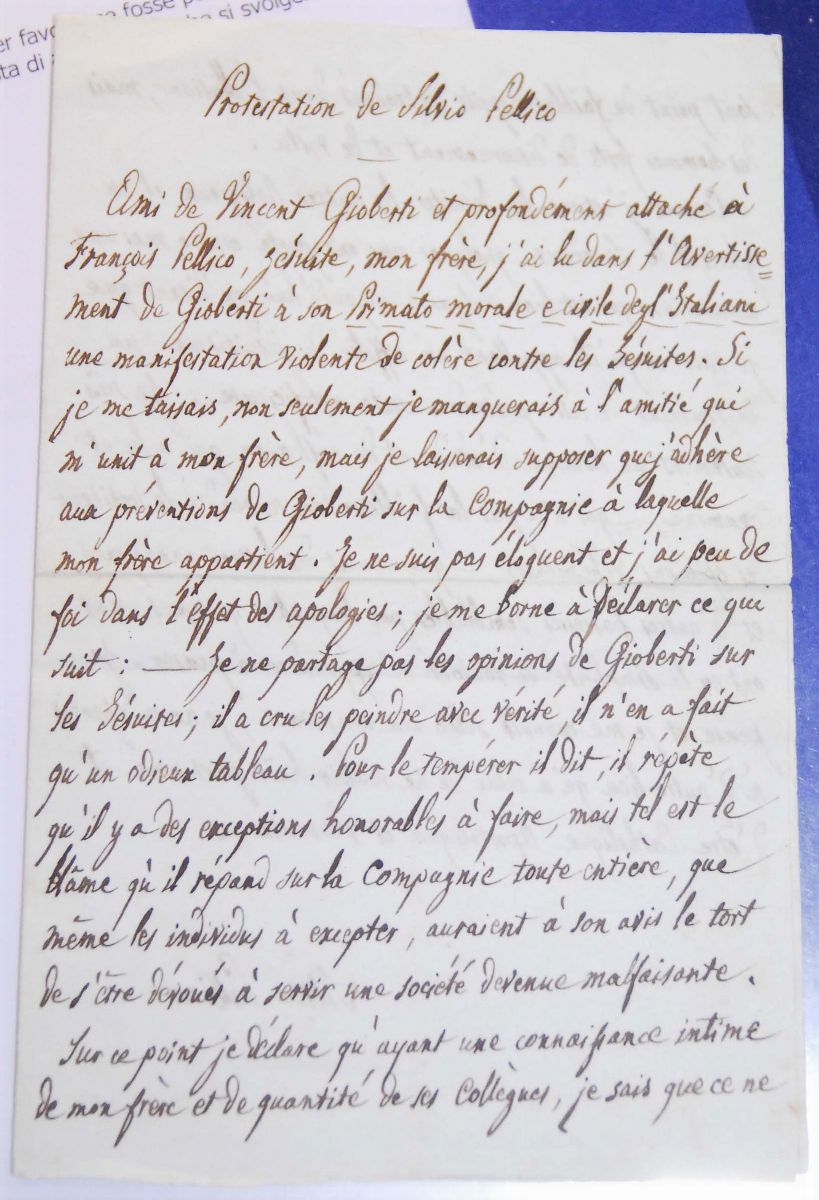 er favo
fosse p
si svolge
ta di
Protestation de Silvio Pellico
Ami de Vincent Gioberti et profondément attaché à
François Pellico, Jésuite, mon frère, j'ai lu dans l'Avertisse=
ment de Gioberti à son Primato morale e civile degl'Italiani
une manifestation violente de colère contre les Jésuites. Si
je me taisais, non seulement je manquerais à l'amitié qui
m'unit à mon frère, mais je laisserais supposer que j'adhère
aux préventions de Gioberti sur la Compagnie à laquelle
mon frère appartient. Je ne suis pas éloquent et j'ai peu de
foi dans l'effet des apologies; je me borne à déclarer ce qui
suit: — Je ne partage pas les opinions de Gioberti sur
les Jésuites; il a cru les peindre avec vérité, il n'en a fait
qu'un odieux tableau. Pour le tempérer il dit, il répète
qu'il y a des exceptions honorables à faire, mais tel est le
blâme qu'il répand sur la Compagnie toute entière, que
même les individus à excepter, auraient à son avis le tort
de s'être dévoués à servir une société devenue malfaisante.
Sur ce point je déclare qu'ayant une connaissance intime
de mon frère et de quantité de ses Collègues, je sais que ce ne